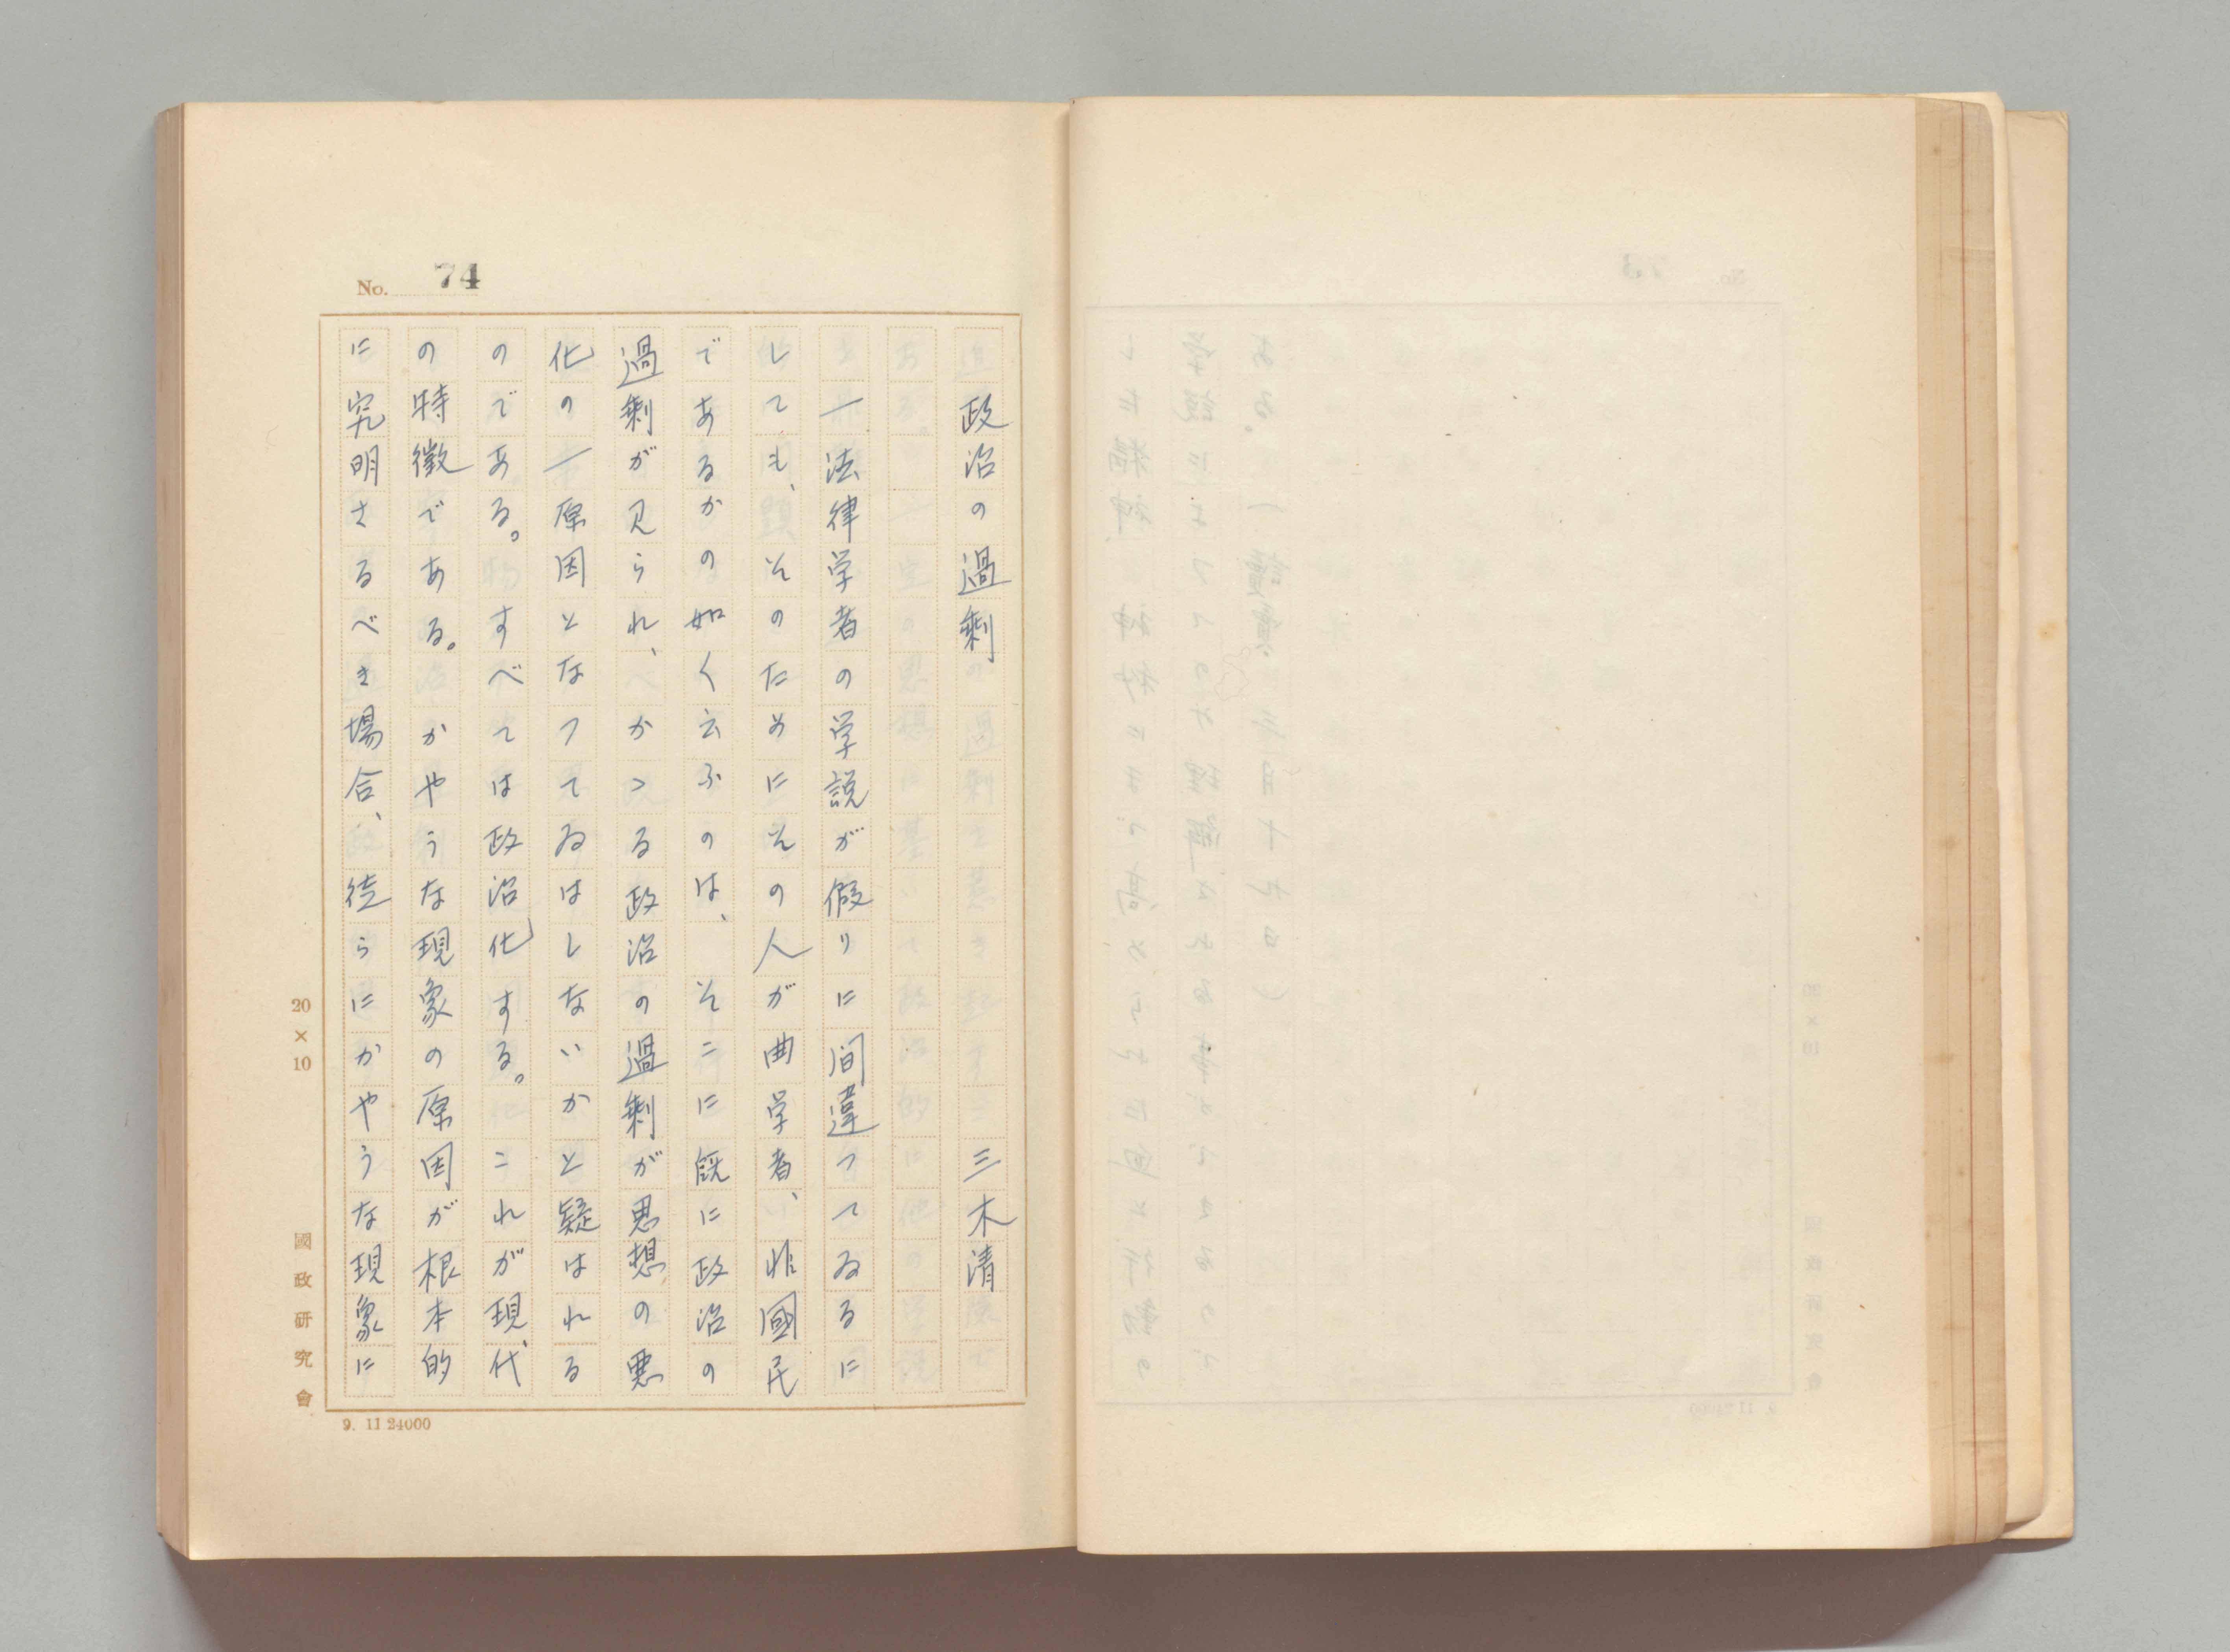 No. 74
政治の過剰 三木清
一法律学者の学説が假りに間違つてゐるに
しても、そのためにその人が曲学者、非國民
であるかの如く云ふのは、そこに既に政治の
過剰が見られ、かゝる政治の過剰が思想の悪
化の一原因となつてゐはしないかと疑はれる
のである。すべては政治化する。これが現代
の特徴である。かやうな現象の原因が根本的
に究明さるべき場合、徒らにかやうな現象に
20×10
國政研究會
9. 11 24000